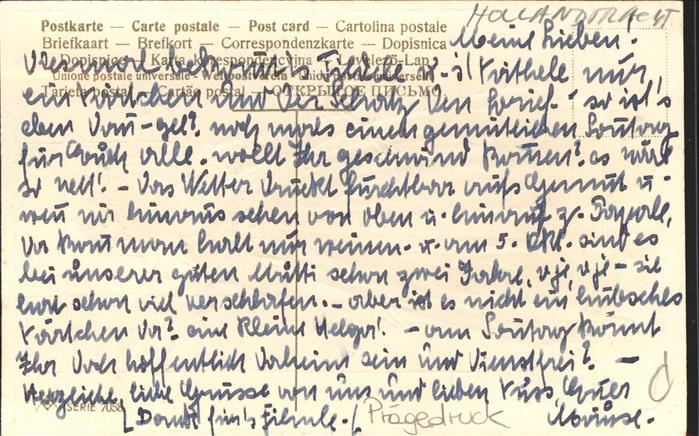 HOLLANDTRACHT
Postkarte — Carte postale — Post card — Cartolina postale
Briefkaart — Brefkort — Correspondenzkarte — Dopisnica
Meine Lieben.
Dopisnice — Karta Korrespondencyjna — Levelezö-Lap
Union postale universelle - Weltpostverein
Tarjeta postal — Cartão postal — ОТКРЫТОЕ ПИСЬМО
ein Kärtchen und der Schatz den Brief. so ist's
eben nochmals einen gemütlichen Sonntag
für Euch alle. wollt Ihr geschwind kommen? es wär
so nett! — Das Wetter drückt furchtbar aufs Gemüt u.
wenn wir hinaus sehen von oben u. hinauf z.
da kann man halt nur weinen. u. am 5. Okt. sind es
bei unserer guten Mutti schon zwei Jahre, oje, oje — sie
hat schon viel verschlafen. — aber ist es nicht ein hübsches
Kärtchen da? eine kleine Helga! — am Sonntag könnt
Ihr doch hoffentlich daheim sein und Dienstfrei? —
Herzliche, liebe Grüsse von uns und lieben Kuss, Euer
SERIE 7058
[Dank für's Filmle.] Prägedruck Mause.